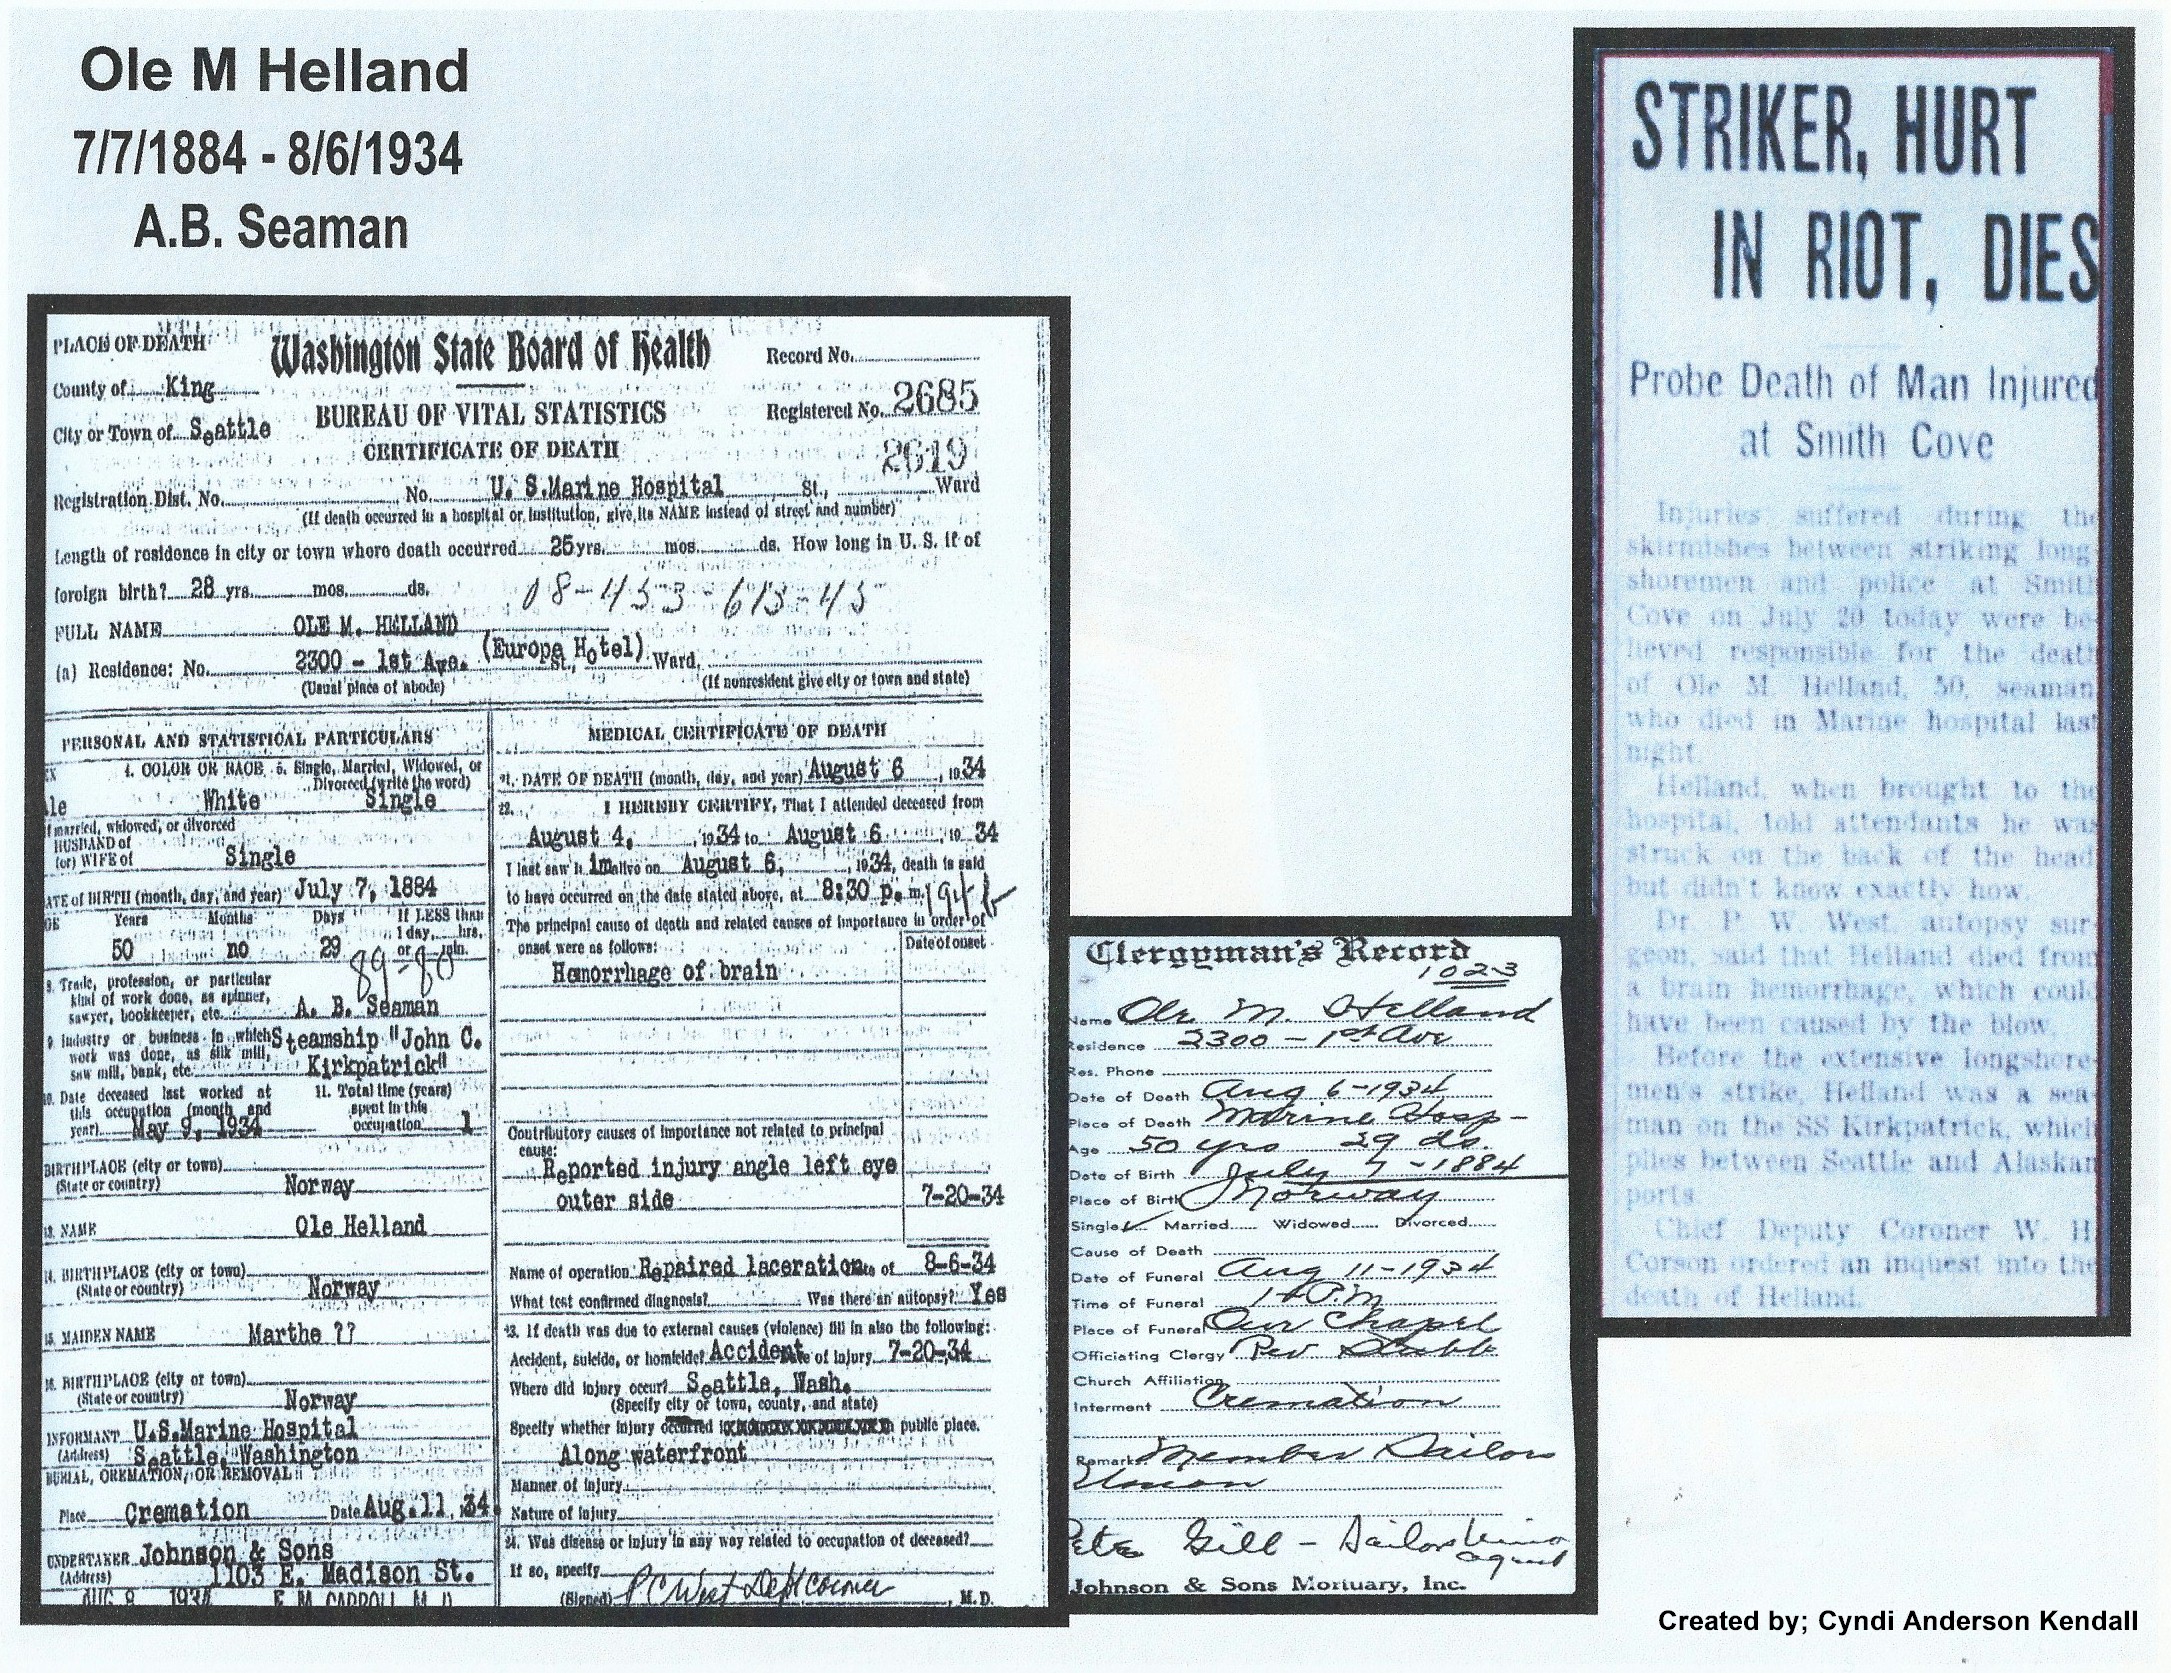 Ole M Helland
7/7/1884 - 8/6/1934
A.B. Seaman
PLACE OF DEATH
Washington State Board of Health
Record No.
County of King
BUREAU OF VITAL STATISTICS
Registered No. 2685
City or Town of Seattle
CERTIFICATE OF DEATH
2619
Registration Dist. No. No. U. S.Marine Hospital St., Ward
(If death occurred in a hospital or institution, give its NAME instead of street and number)
Length of residence in city or town where death occurred 25 yrs. mos. ds. How long in U. S. if of
foreign birth? 28 yrs. mos. ds.
18-453-613-45
FULL NAME OLE M. HELLAND
(a) Residence: No. 2300 - 1st Ave. (Europe Hotel) St., Ward,
(Usual place of abode) (If nonresident give city or town and state)
PERSONAL AND STATISTICAL PARTICULARS
4. COLOR OR RACE 5. Single, Married, Widowed, or
Divorced (write the word)
le White Single
If married, widowed, or divorced
HUSBAND of
(or) WIFE of Single
ATE of BIRTH (month, day, and year) July 7, 1884
GE Years Months Days If LESS than
1 day, hrs.
50 no 29 or min.
89-80
8. Trade, profession, or particular
kind of work done, as spinner,
sawyer, bookkeeper, etc. A. B. Seaman
9 Industry or business in which Steamship "John C.
work was done, as silk mill,
saw mill, bank, etc. Kirkpatrick"
10. Date deceased last worked at 11. Total time (years)
this occupation (month and spent in this
year) May 9, 1934 occupation 1
BIRTHPLACE (city or town)
(State or country) Norway
13. NAME Ole Helland
14. BIRTHPLACE (city or town)
(State or country) Norway
15. MAIDEN NAME Marthe ??
16. BIRTHPLACE (city or town)
(State or country) Norway
INFORMANT U.S.Marine Hospital
(Address) Seattle, Washington
BURIAL, CREMATION, OR REMOVAL
Place Cremation Date Aug.11, 34
UNDERTAKER Johnson & Sons
(Address) 1103 E. Madison St.
AUG 8 1934 E. M. CARROLL M. D.
MEDICAL CERTIFICATE OF DEATH
21. DATE OF DEATH (month, day, and year) August 6, 1934
22. I HEREBY CERTIFY, That I attended deceased from
August 4, 1934 to August 6, 19 34
I last saw h im alive on August 6, 1934, death is said
to have occurred on the date stated above, at 8:30 p. m.
The principal cause of death and related causes of importance in order of
onset were as follows: Date of onset
Hemorrhage of brain
Contributory causes of importance not related to principal
cause:
Reported injury angle left eye
outer side 7-20-34
Name of operation Repaired laceration Date of 8-6-34
What test confirmed diagnosis? Was there an autopsy? Yes
23. If death was due to external causes (violence) fill in also the following:
Accident, suicide, or homicide? Accident Date of injury 7-20-34
Where did injury occur? Seattle, Wash.
(Specify city or town, county, and state)
Specify whether injury occurred in public place.
Along waterfront
Manner of injury
Nature of injury
24. Was disease or injury in any way related to occupation of deceased?
If so, specify
(Signed) P C West Dept Coroner, M.D.
Clergyman's Record
1023
Name Ole M. Helland
Residence 2300 - 1st Ave
Res. Phone
Date of Death Aug 6-1934
Place of Death Marine Hosp-
Age 50 yrs 29 ds.
Date of Birth July 7-1884
Place of Birth Norway
Single Married Widowed Divorced
Cause of Death
Date of Funeral Aug 11-1934
Time of Funeral 1 P.M
Place of Funeral Our Chapel
Officiating Clergy Rev
Church Affiliation
Interment Cremation
Remarks Member Sailors
Union
Pete Gill - Sailors Union
agent
Johnson & Sons Mortuary, Inc.
STRIKER, HURT
IN RIOT, DIES
Probe Death of Man Injured
at Smith Cove
Injuries suffered during the
skirmishes between striking long-
shoremen and police at Smith
Cove on July 20 today were be-
lieved responsible for the death
of Ole M. Helland, 50, seaman,
who died in Marine hospital last
night.
Helland, when brought to the
hospital, told attendants he was
struck on the back of the head
but didn't know exactly how.
Dr. P. W. West, autopsy sur-
geon, said that Helland died from
a brain hemorrhage, which could
have been caused by the blow.
Before the extensive longshore-
men's strike, Helland was a sea-
man on the SS Kirkpatrick, which
plies between Seattle and Alaskan
ports.
Chief Deputy Coroner W. H.
Corson ordered an inquest into the
death of Helland.
Created by; Cyndi Anderson Kendall